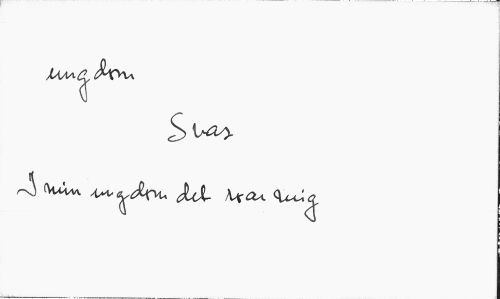 ungdom
Svar
I min ungdom det var mig